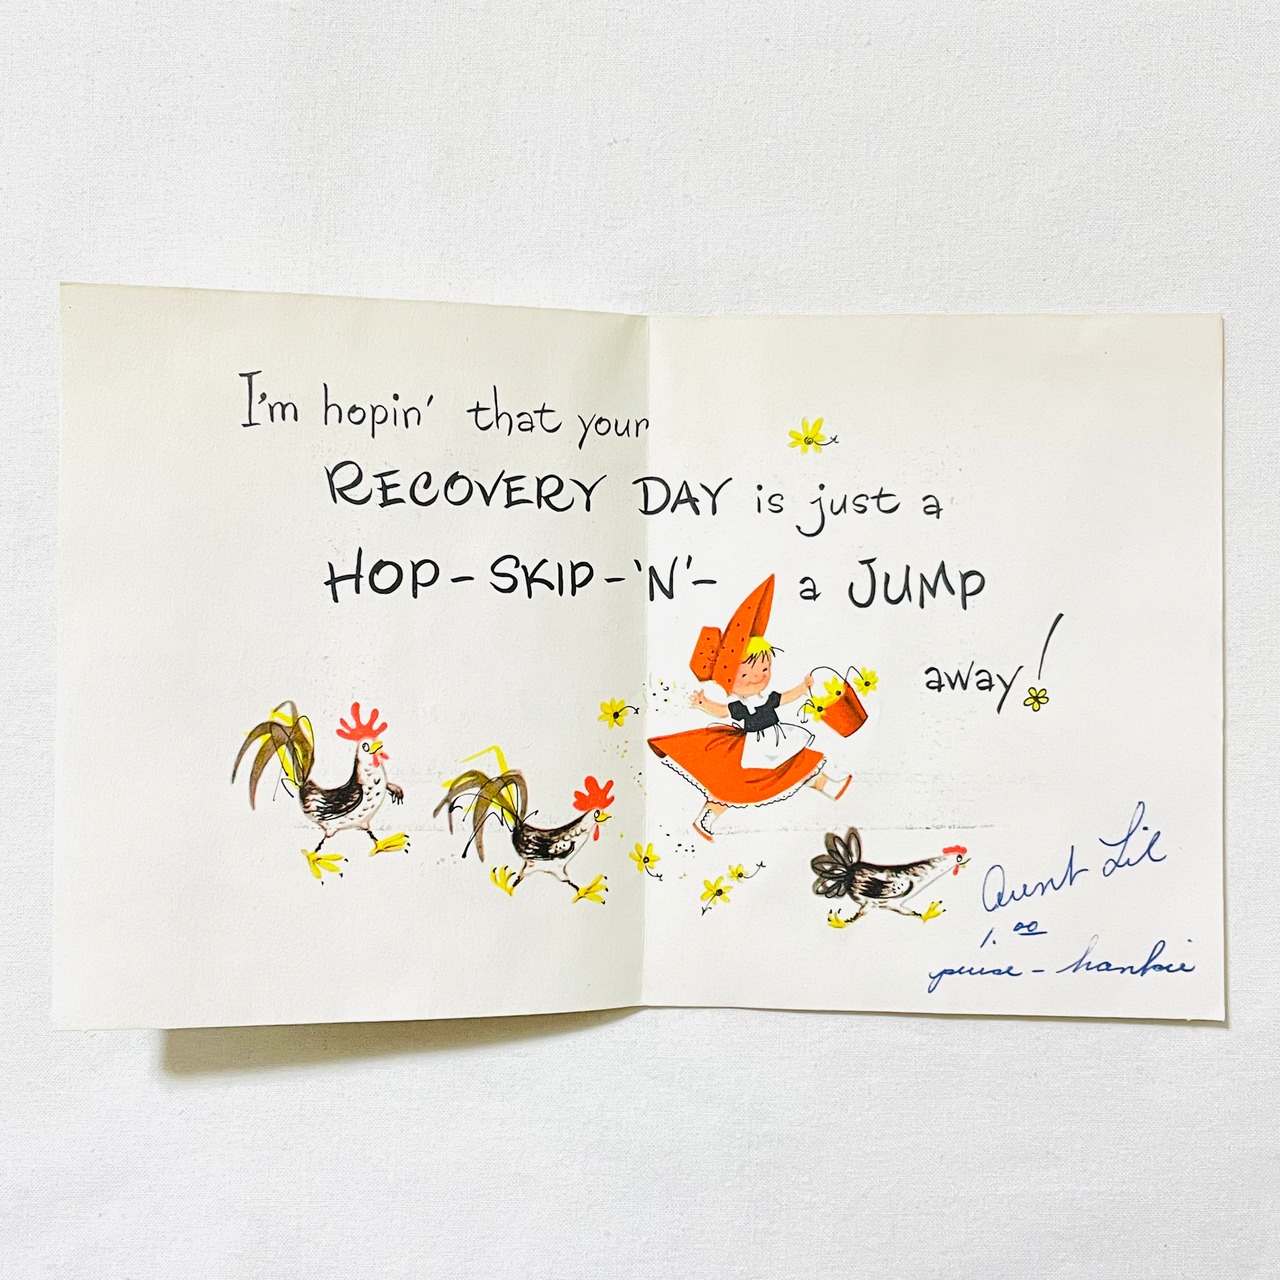 I'm hopin' that your
RECOVERY DAY is just a
HOP-SKIP-'N'- a JUMP
away!
Aunt Lil
1.00
purse - hankie